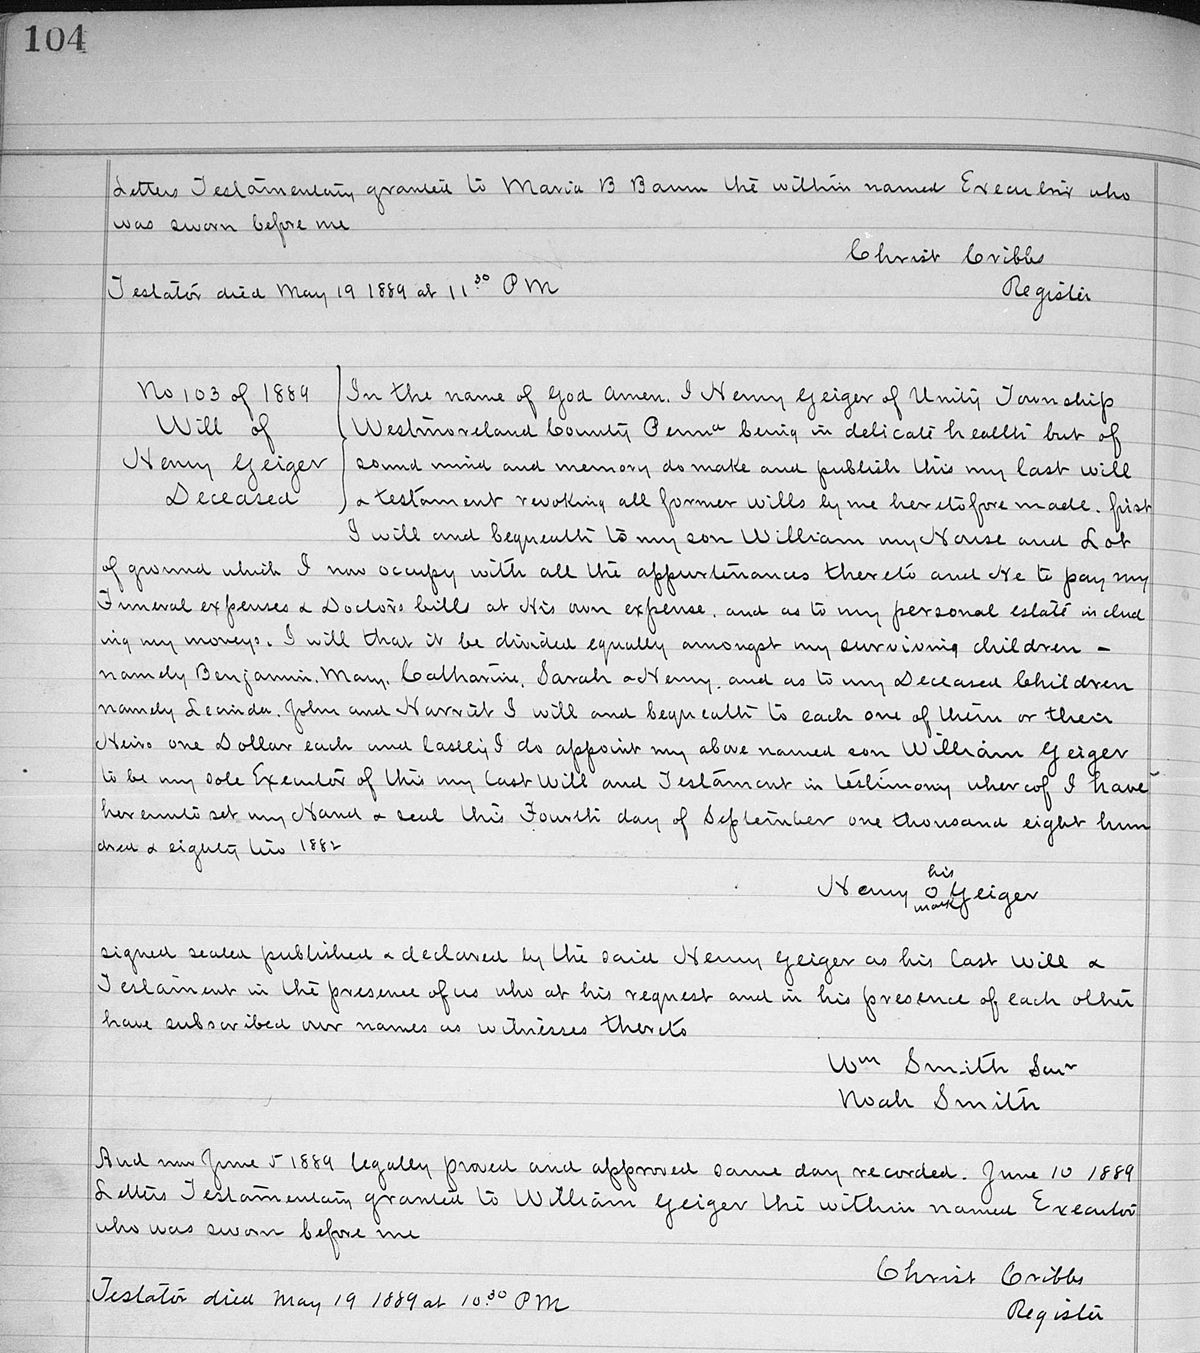 104
Letters Testamentary granted to Maria B Baum the within named Executrix who
was sworn before me
Christ Cribbs
Testator died May 19 1889 at 11 30 PM
Register
No 103 of 1889
Will of
Henry Geiger
Deceased
In the name of God Amen. I Henry Geiger of Unity Township
Westmoreland County Penna being in delicate health but of
sound mind and memory do make and publish this my last will
& testament revoking all former wills by me heretofore made. first
I will and bequeath to my son William my House and Lot
of ground which I now occupy with all the appurtenances thereto and He to pay my
Funeral expenses & Doctors bills at His own expense. and as to my personal estate includ
ing my moneys. I will that it be divided equally amongst my surviving children -
namely Benjamin. Mary. Catharine. Sarah & Henry. and as to my Deceased Children
namely Lucinda. John and Harriet I will and bequeath to each one of them or their
Heirs one Dollar each and lastly I do appoint my above named son William Geiger
to be my sole Executor of this my last Will and Testament in testimony whereof I have
hereunto set my Hand & seal this Fourth day of September one thousand eight hun
dred & eighty two 1882
his
Henry O Geiger
mark
signed sealed published & declared by the said Henry Geiger as his last Will &
Testament in the presence of us who at his request and in his presence of each other
have subscribed our names as witnesses thereto
Wm Smith Senr
Noah Smith
And now June 5 1889 legally proved and approved same day recorded. June 10 1889
Letters Testamentary granted to William Geiger the within named Executor
who was sworn before me
Christ Cribbs
Testator died May 19 1889 at 10.30 PM
Register